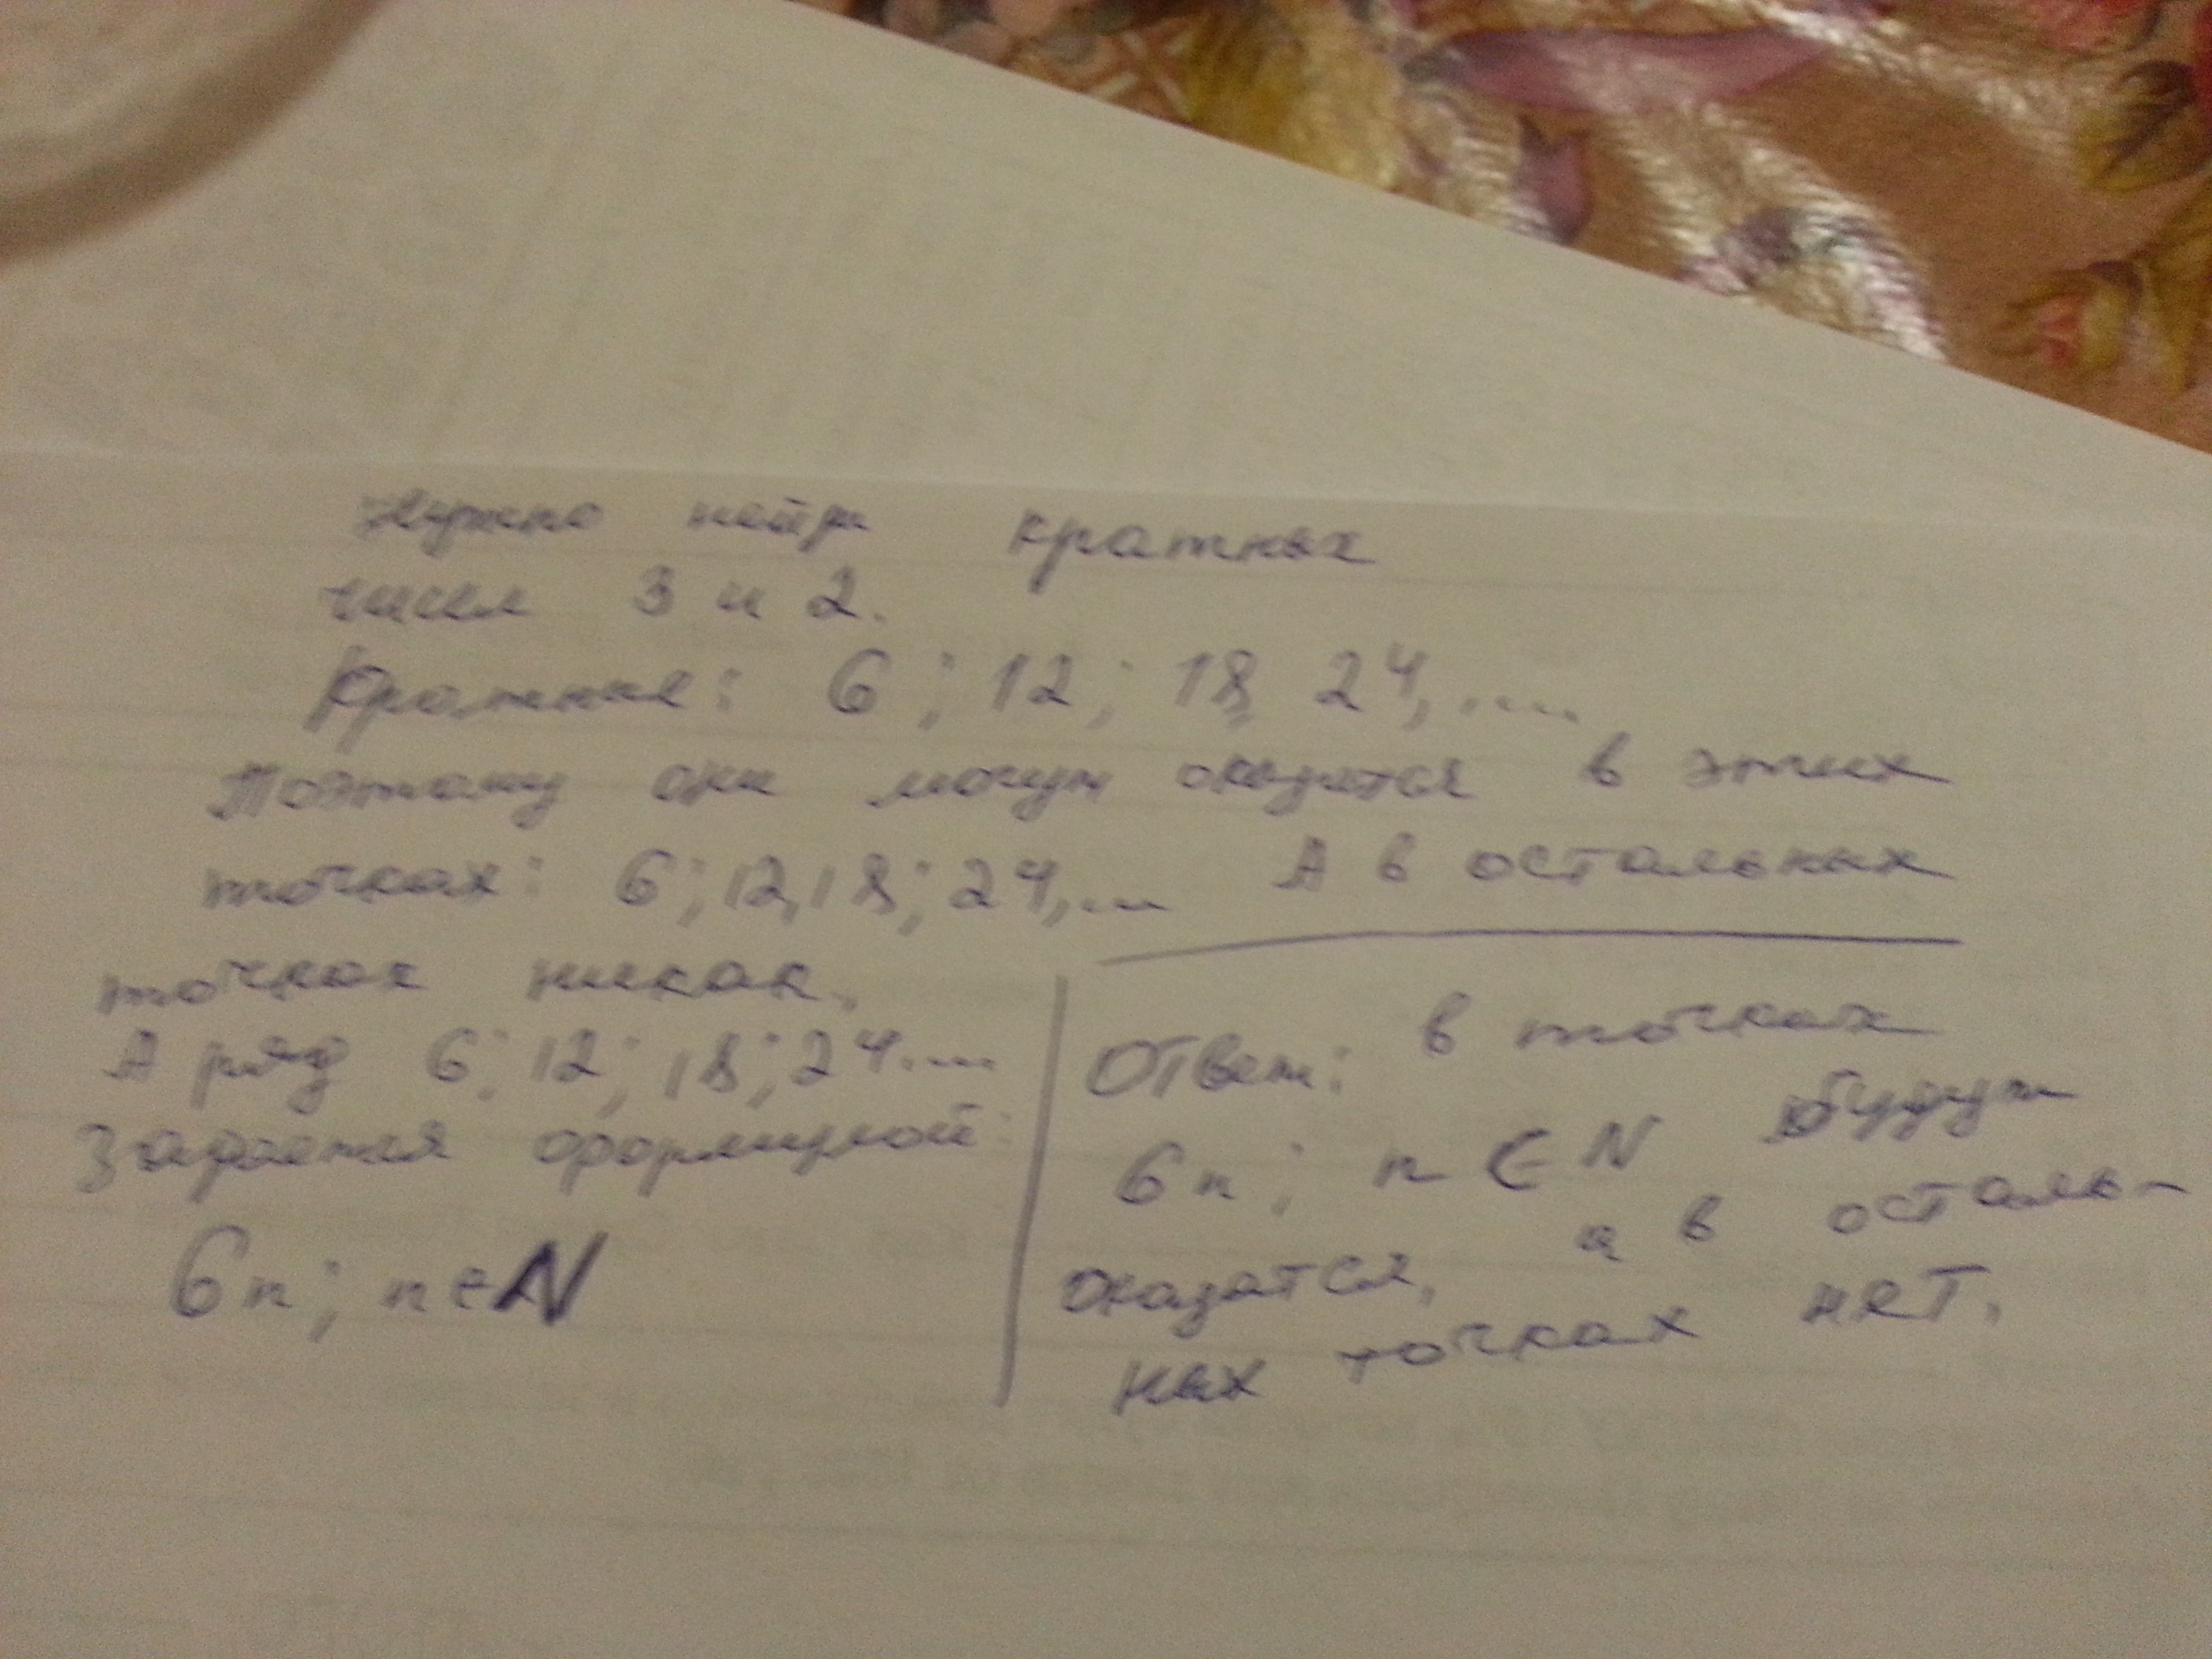 Нужно найти кратных
чисел 3 и 2.
Кратные: 6; 12; 18, 24, ....
Поэтому они могут окажится в этих
точках: 6; 12, 18; 24, ... А в остальных
точках никак.
А ряд 6; 12; 18; 24....
Задаётся формулой:
6n; n ∈ N
Ответ: в точках
6n; n ∈ N будут
оказатся, а в осталь-
ных точках нет.